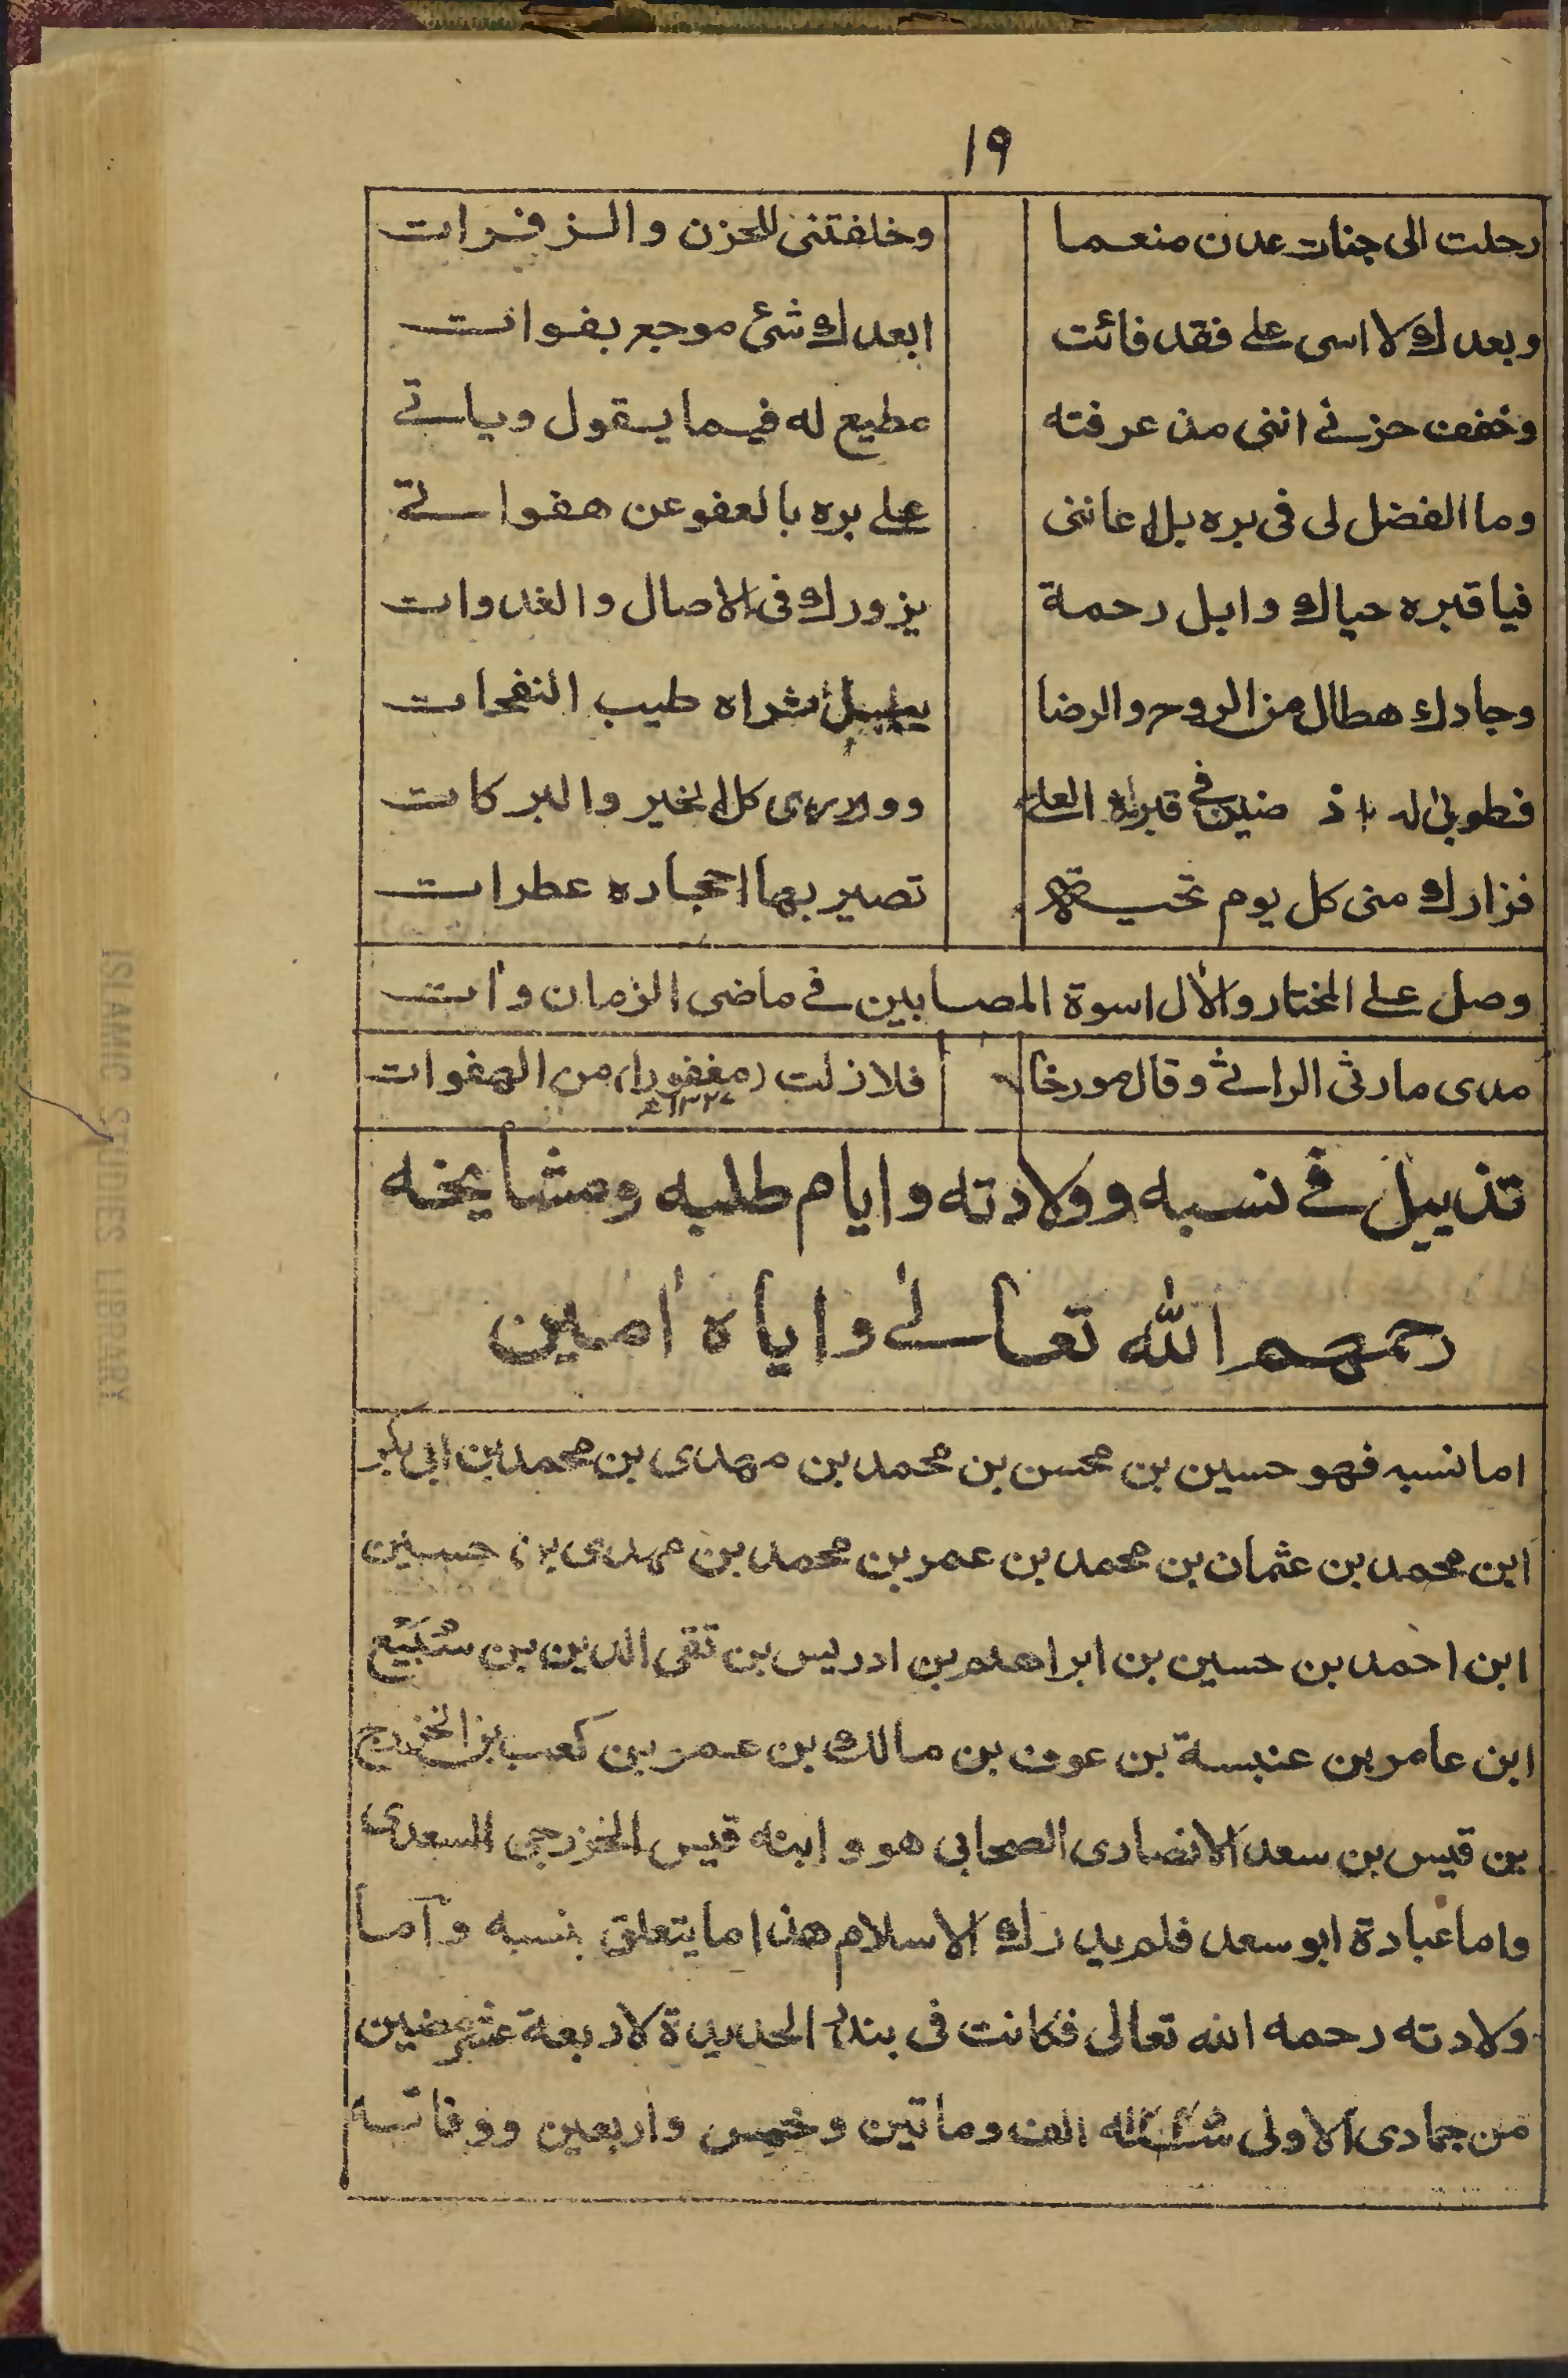 ١٩
رحلت الى جنات عدن منعما وخلفتنى للحزن والزفرات
وبعدك لا اسى على فقد فائت ابعدك شئ موجع بفوات
وخفف حزنى اننى مذ عرفته مطيع له فيما يقول وياتى
وما الفضل لى فى بره بل اعاننى على بره بالعفو عن هفواتى
فيا قبره حياك وابل رحمة يزورك فى الاصال والغدوات
وجادك هطال من الروح والرضا ثراه طيب النفحات
فطوبى له اذ فى قبره العلى كل الخير والبركات
فزارك منى كل يوم تحية تصير بها احجاره عطرات
وصل على المختار والأل اسوة المصابين فى ماضى الزمان وأت
مدى مارثى الراثى وقال مورخا فلازلت (مغفورا) من الهفوات
تذييل فى نسبه وولادته وايام طلبه ومشايخه
رحمهم الله تعالى واياه أمين
اما نسبه فهو حسين بن محسن بن محمد بن مهدى بن محمد بن ابى بكر
ابن محمد بن عثمان بن محمد بن عمر بن محمد بن مهدى بن حسين
ابن احمد بن حسين بن ابراهيم بن ادريس بن تقى الدين بن سُبَيْع
ابن عامر بن عنبسة بن عوف بن مالك بن عمر بن كعب بن الخزرج
بن قيس بن سعد الانصارى الصحابى هو وابنه قيس الخزرجى السعدى
واما عبادة ابو سعد فلم يدرك الاسلام هذا ما يتعلق بنسبه وأما
ولادته رحمه الله تعالى فكانت فى بندر الحديدة لاربعة عشر مضين
من جمادى الاولى الف وماتين وخمس واربعين ووفاته
ISLAMIC STUDIES LIBRARY